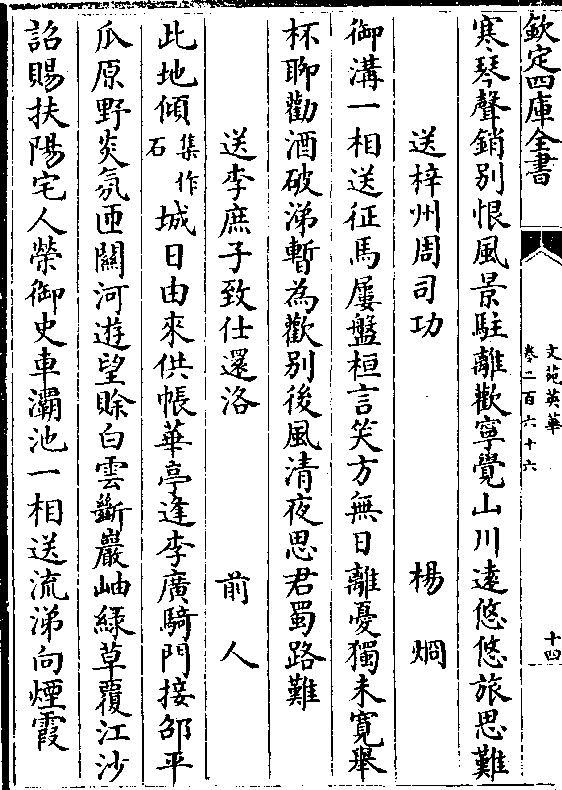 欽定四庫全書
文苑英華
卷二百六十六
十四
寒琴聲銷別恨風景駐離歡寧覺山川遠悠悠旅思難
送梓州周司功
楊烱
御溝一相送征馬屢盤桓言笑方無日離憂獨未寛舉
杯聊勸酒破涕暫為歡别後風清夜思君蜀路難
送李庶子致仕還洛
前人
此地傾集作石城日由來供帳華亭逢李廣騎門接邵平
瓜原野炎氛匝關河遊望賖白雲斷巖岫緑草覆江沙
詔賜扶陽宅人榮御史車灞池一相送流涕向煙霞